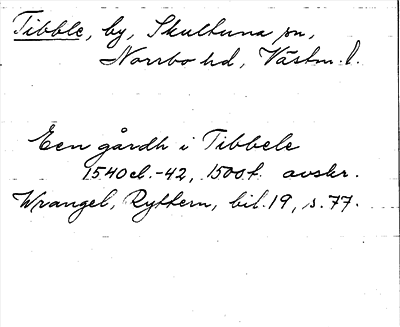 Tibble, by, Skultuna sn,
Norrbo hd, Västm. l.
Een gårdh i Tibbele
1540 el. -42, 1500t. avskr.
Wrangel, Ryttern, bil. 19, s. 77.